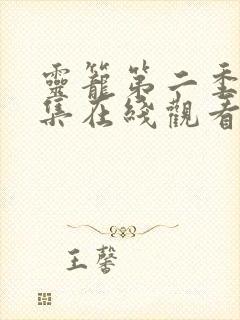 靈籠第二季
集在綫觀看
王馨